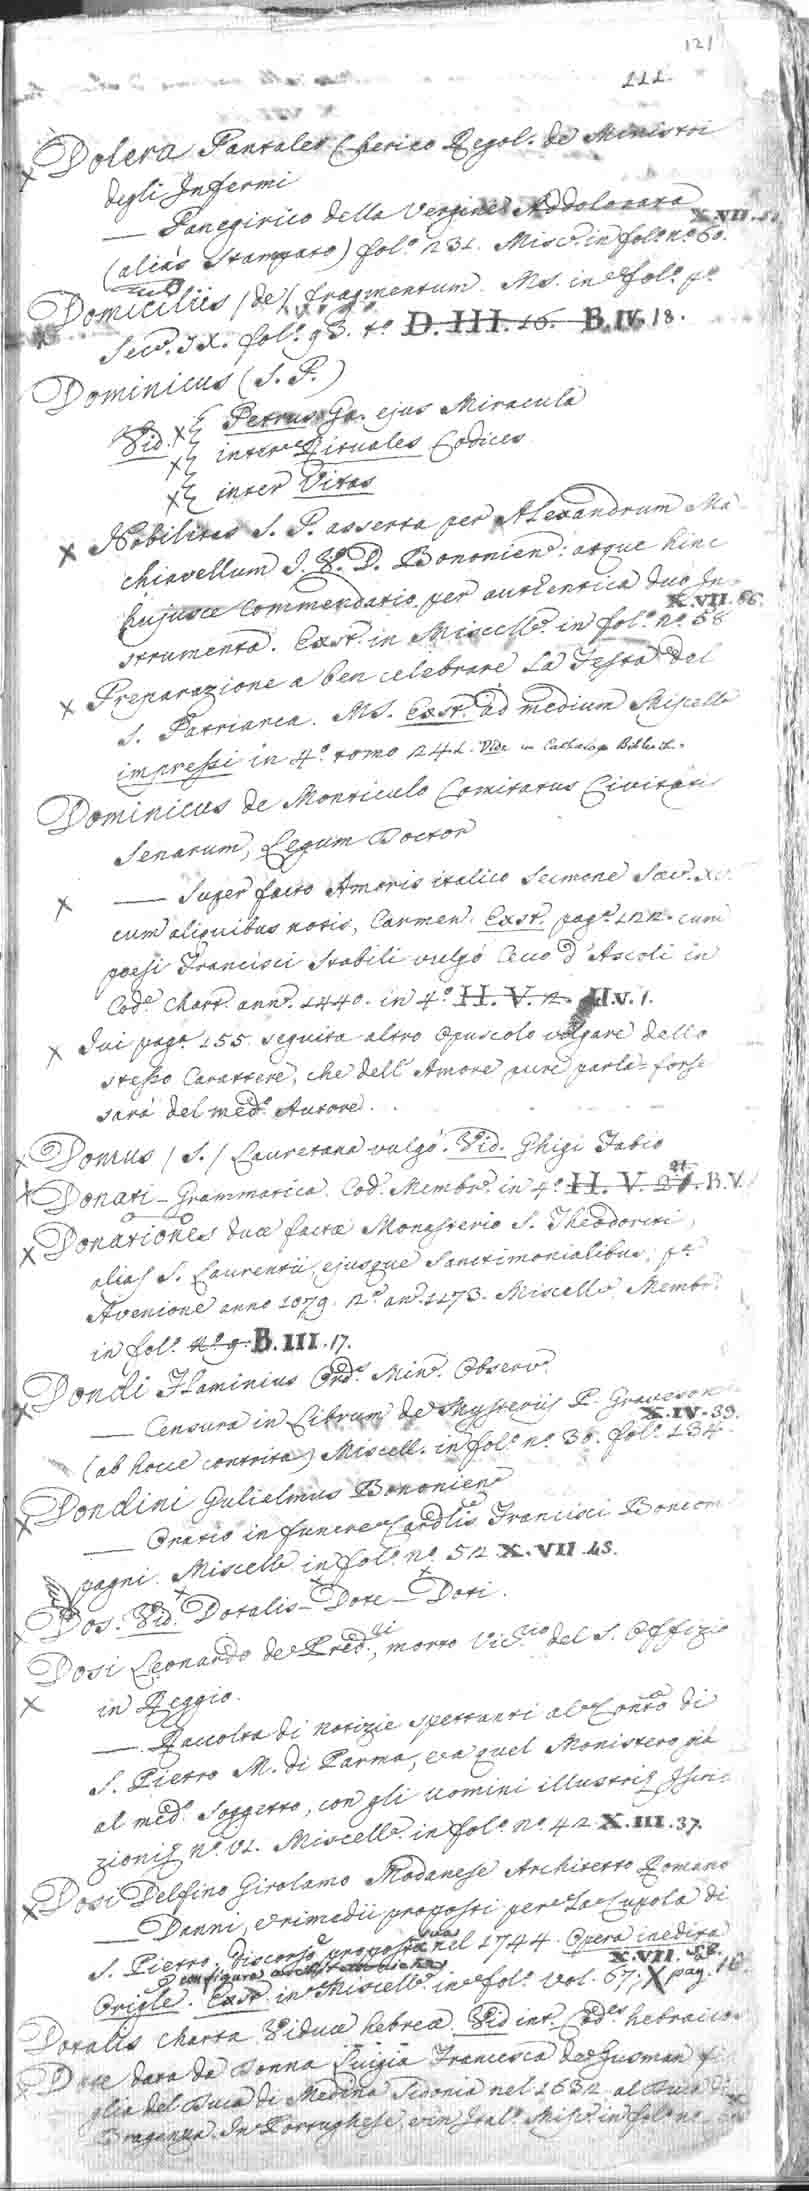 121
111.
Dolera Pantaleo Cherico Regol. de Ministri
degli Infermi
— Panegirico della Vergine Addolorata X.VII.
(alias stampato) fol.º 231. Misc.º in fol.º nº 60.
Domiciliis (de) fragmentum. Ms. in fol.º pº
Sec.º IX. fol.º 93. tº D. III. 16. B. IV. 18.
Dominicus (S. P.)
Vid. Petrus Ga. ejus Miracula
inter Rituales Codices
inter Vitas
Nobilitas S. P. asserta per Alexandrum Ma-
chiavellum J. V. D. Bononien: atque hinc
hujusce Commendatio per authentica duo In-
strumenta. Exst. in Miscell. in fol.º nº 58 X.VII.66.
Preparazione a ben celebrare la Festa del
S. Patriarca. MS. Exst. ad medium Miscell.
impressi in 4º tomo 241. Vide in Catalogo Biblioth.
Dominicus de Monticulo Comitatus Civitatis
Senarum, Legum Doctor
— Super facto Amoris italico sermone Sæc. XV.
cum aliquibus notis, Carmen. Exst. pag. 122. cum
poesi Francisci Stabili vulgo Cecco d'Ascoli in
Cod. chart. ann. 1440. in 4º H. V. 2. H.V.1.
Ivi pag. 155. seguita altro Opuscolo volgare dello
stesso Carattere, che dell' Amore pure parla: forse
sarà del med.º Autore.
Domus (S.) Lauretana vulgo. Vid. Ghigi Fabio
Donati — Grammatica. Cod. Membr. in 4º H. V. 21. B.V.
Donationes duæ factæ Monasterio S. Theodoriti,
alias S. Laurentii, ejusque Sanctimonialibus; pª
Avenione anno 1079. 2ª an. 1173. Miscell. Membr.
in fol.º nº 9. B. III. 17.
Dondi Flaminius Ord.s Min. Observ.
— Censura in Librum de Mysteriis P. Graveson X.IV.39.
(ab hocce contrita) Miscell. in fol.º nº 30. fol.º 134.
Dondini Gulielmus Bononien.
— Oratio in funere Cardlis Francisci Boncom
pagni. Miscell. in fol.º nº 52 X.VII.45.
Dos. Vid. Dotalis — Dote — Doti.
Dosi Leonardo de Pred.ri, morto Vic.rio del S. Offizio
in Reggio.
— Raccolta di notizie spettanti al Conto di
S. Pietro M. di Parma, e a quel Monistero già
al med.º Soggetto, con gli uomini illustri, Iscri-
zioni, nº VI. Miscell. in fol.º nº 42 X.III.37.
Dosi Delfino Girolamo Modanese Architetto Romano
— Danni, e rimedii proposti per la Cupola di
S. Pietro, discorso proposto nel 1744. Opera inedita
con figura X.VII. 58.
Origle. Exst. in Miscell. in fol.º vol. 67; X pag. 16.
Dotalis charta Viduæ hebreæ. Vid int. Cod.es hebraicos
Dote data da Donna Luigia Francesca de Gusman fi-
glia del Duca di Medina Sidonia nel 1632 al Duca di
Braganza. In Portughese, e in Ital.º Misc. in fol. nº